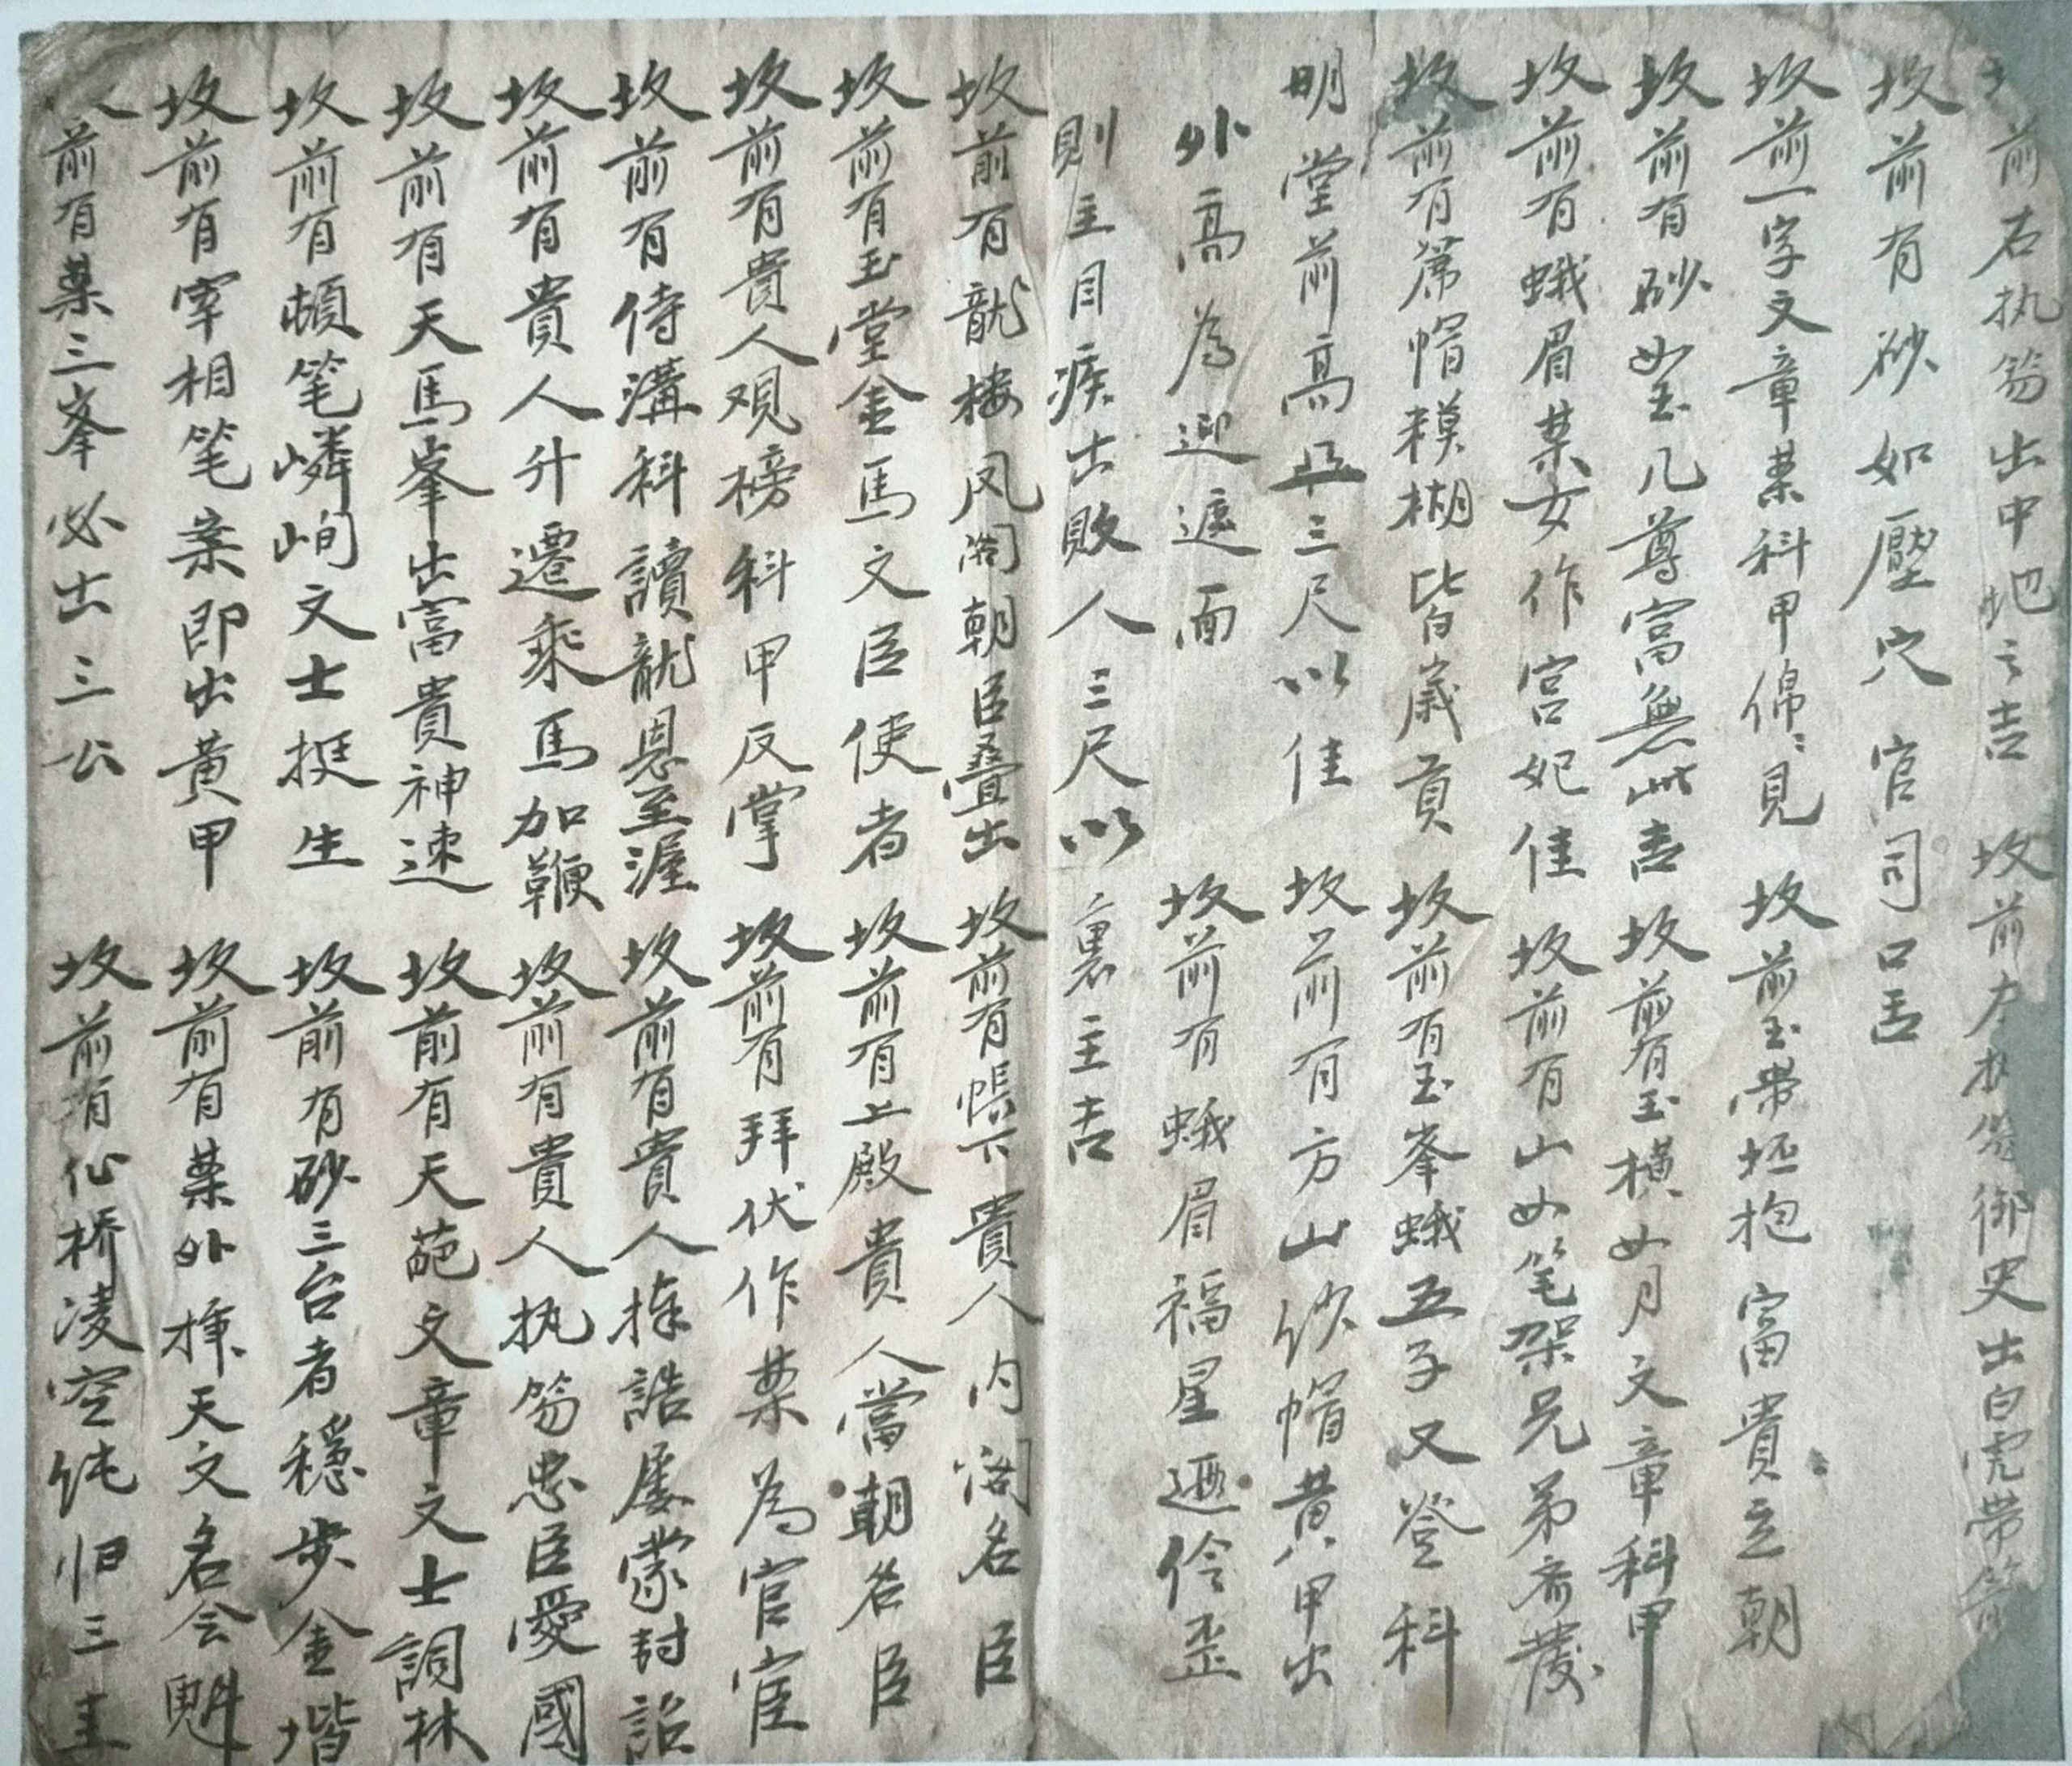 前右执笏出中地之吉 坟前左执笏御史出白虎带
坟前有砂如壓穴官司口舌
坟前一字文章案科甲綿〻見 坟前玉带坯抱富貴立朝
坟前有砂如玉几尊富無此吉 坟前有玉横如月文章科甲
坟前有蛾眉案女作宫妃佳 坟前有山如笔架兄弟齐發
坟前有席帽模糊皆歲貢 坟前有玉峯蛾五子又登科
明堂前高昷三尺以佳 坟前有方山纱帽黄甲出
外高為迎遮面 坟前有蛾眉福星遯伶歪
則主目疾古敗人三尺以裏主吉
坟前有龍楼凤阁朝臣叠出 坟前有帳下貴人内阁名臣
坟前有玉堂金馬文臣使者 坟前有上殿貴人當朝名臣
坟前有貴人观榜科甲反掌 坟前有拜伏作案為官宦
坟前有侍溝科讀龍恩至渥 坟前有貴人捧誥屡蒙封詔
坟前有貴人升遷乘馬加鞭 坟前有貴人执笏忠臣愛國
坟前有天馬峯出富貴神速 坟前有天葩文章文士詞林
坟前有頓笔嶙峋文士挺生 坟前有砂三台者穩步金堦
坟前有宰相笔案即出黄甲 坟前有案外揷天文名会魁
前有案三峯必出三公 坟前有仙桥凌空纯归三圭